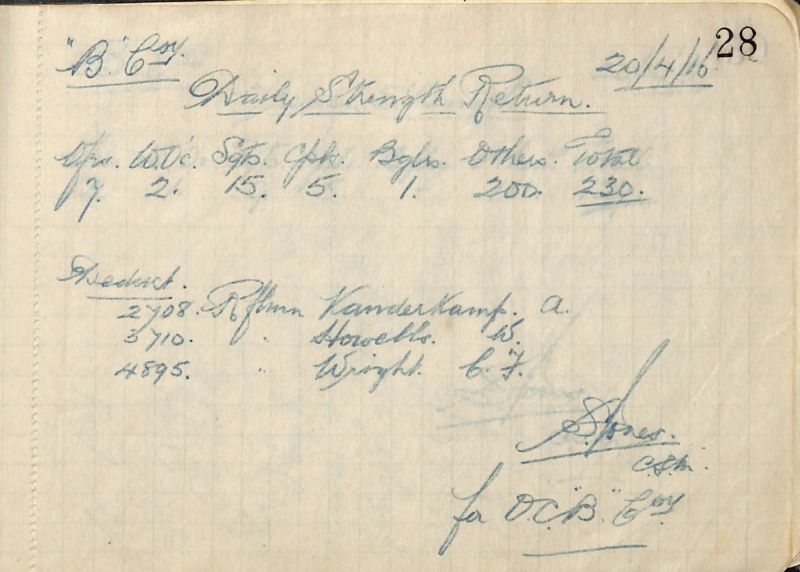 28
"B" Coy. 20/4/16
Daily Strength Return.
Ofrs. W.O's. Sgts. Cpls. Bglrs. Others. Total
7. 2. 15. 5. 1. 200. 230.
Deduct.
2708. Rflmn Vanderkamp. A.
3710. " Howells. W.
4895. " Wright. C. F.
S. Jones.
C.S.M.
for O.C. "B" Coy